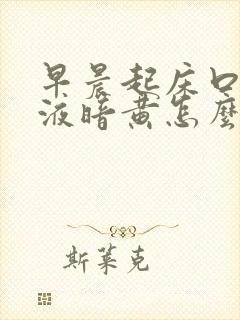 早晨起床口
液暗黄怎麼
斯莱克